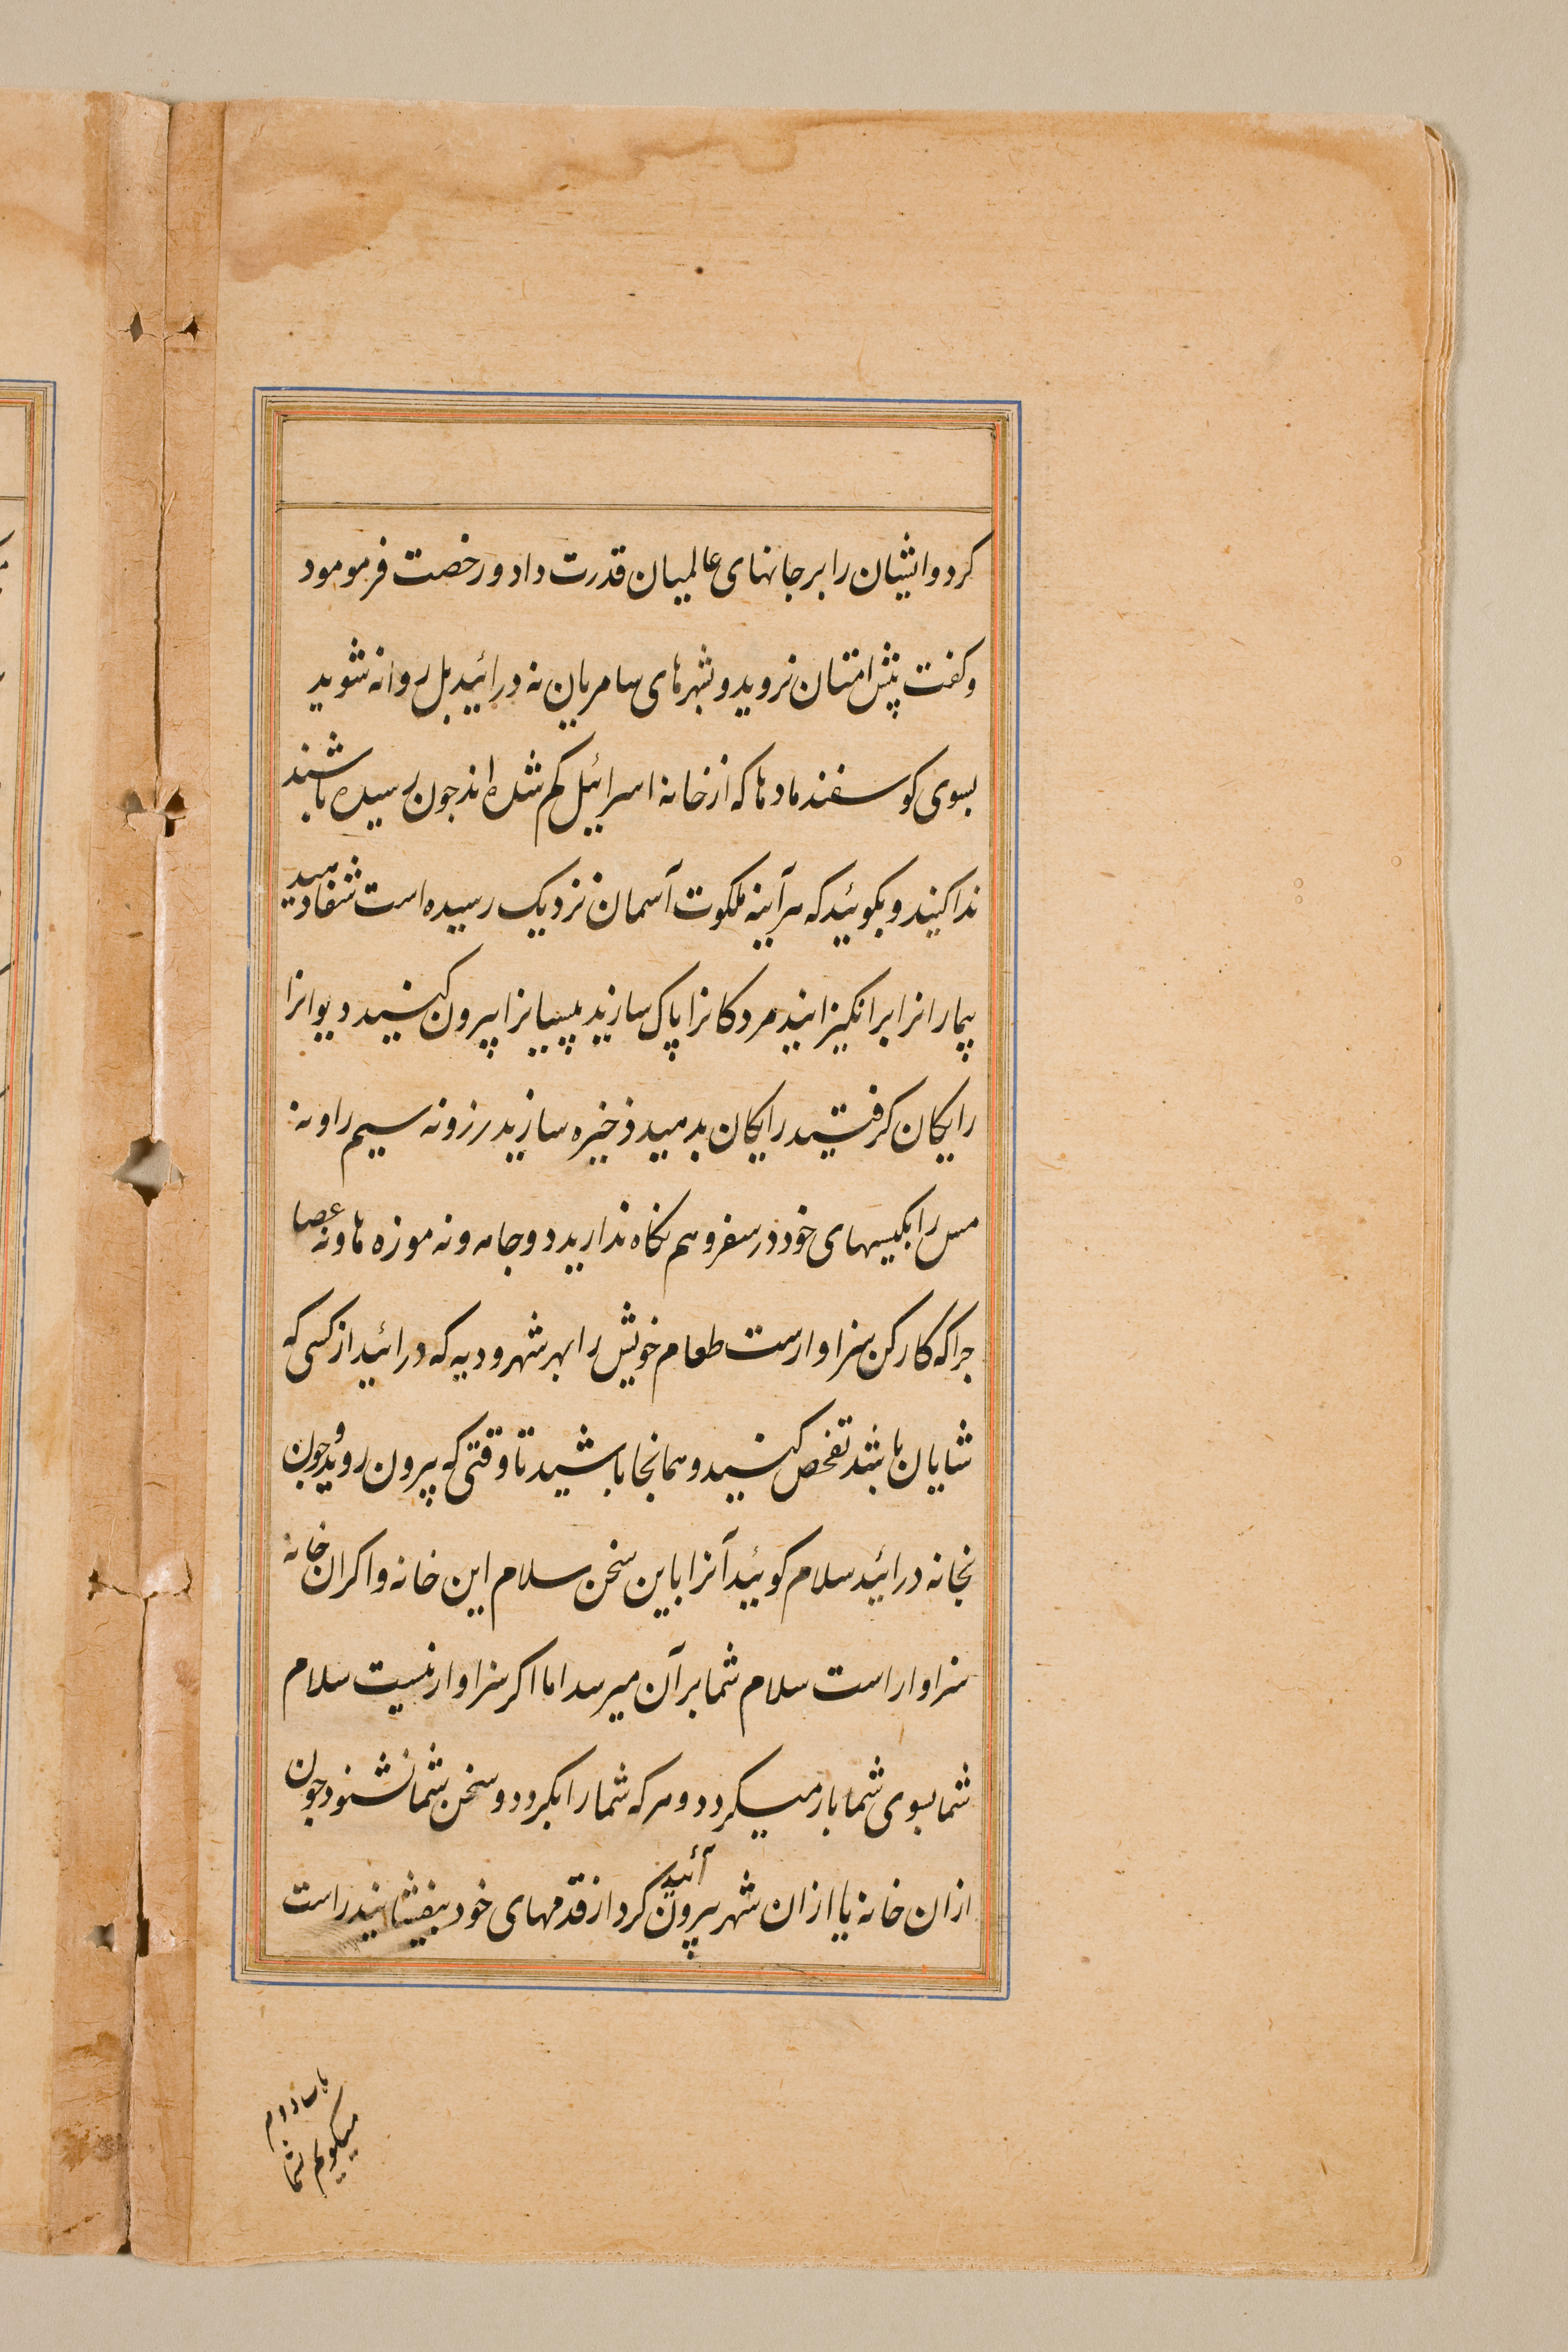 کرد و ایشان را بر جانهای عالمیان قدرت داد و رخصت فرمومود
و کفت پیش امتان نروید و شهرهای سامریان نه درائید بل روانه شوید
بسوی کوسفند مادها که از خانه اسرائیل کم شده اند جون رسیده باشند
ندا کنید و بکوئید که هرآینه ملکوت آسمان نزدیک رسیده است شفا دهید
بیمارانرا برانکیزانید مردکانرا پاک سازید پیسیانرا بیرون کنید دیوانرا
رایکان کرفتید رایکان بدهید ذخیره سازید زر و نه سیم را و نه
مس را بکیسهای خود در سفر و هم نکاه ندارید دو جامه و نه موزه ها و نه عصا
جراکه کارکن سزاوارست طعام خویش را بهر شهر و دیه که درائید از کسی که
شایان باشد تفحص کنید و همانجا باشید تا وقتی که بیرون روید و جون
بخانه درائید سلام کوئید آنرا باین سخن سلام این خانه و اکر ان خانه
سزاوار است سلام شما بر آن میرسد اما اکر سزاوار نیست سلام
شما بسوی شما باز میکردد و هر که شما را نکیرد و سخن شما نشنود جون
ازان خانه یا ازان شهر بیرون آئید کرد از قدمهای خود بیفشانید راست
میکویم شما